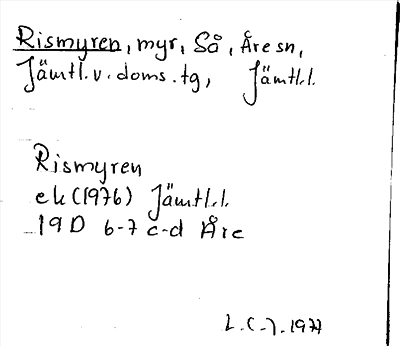 Rismyren, myr, Så, Åre sn,
Jämtl. v. doms. tg, Jämtl. l.
Rismyren
ek (1976) Jämtl. l.
19D 6-7 c-d Åre
L. C-J. 1977